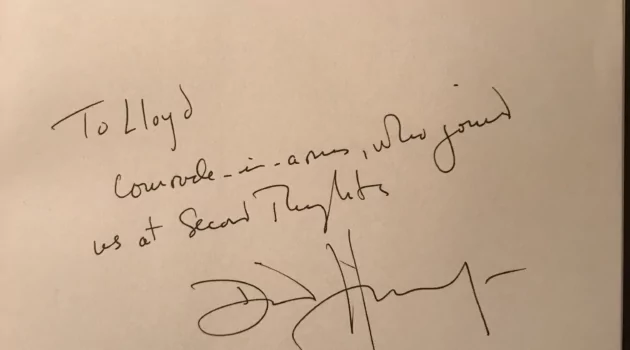 To Lloyd
Comrade-in-arms, who joined
us at Second Thoughts